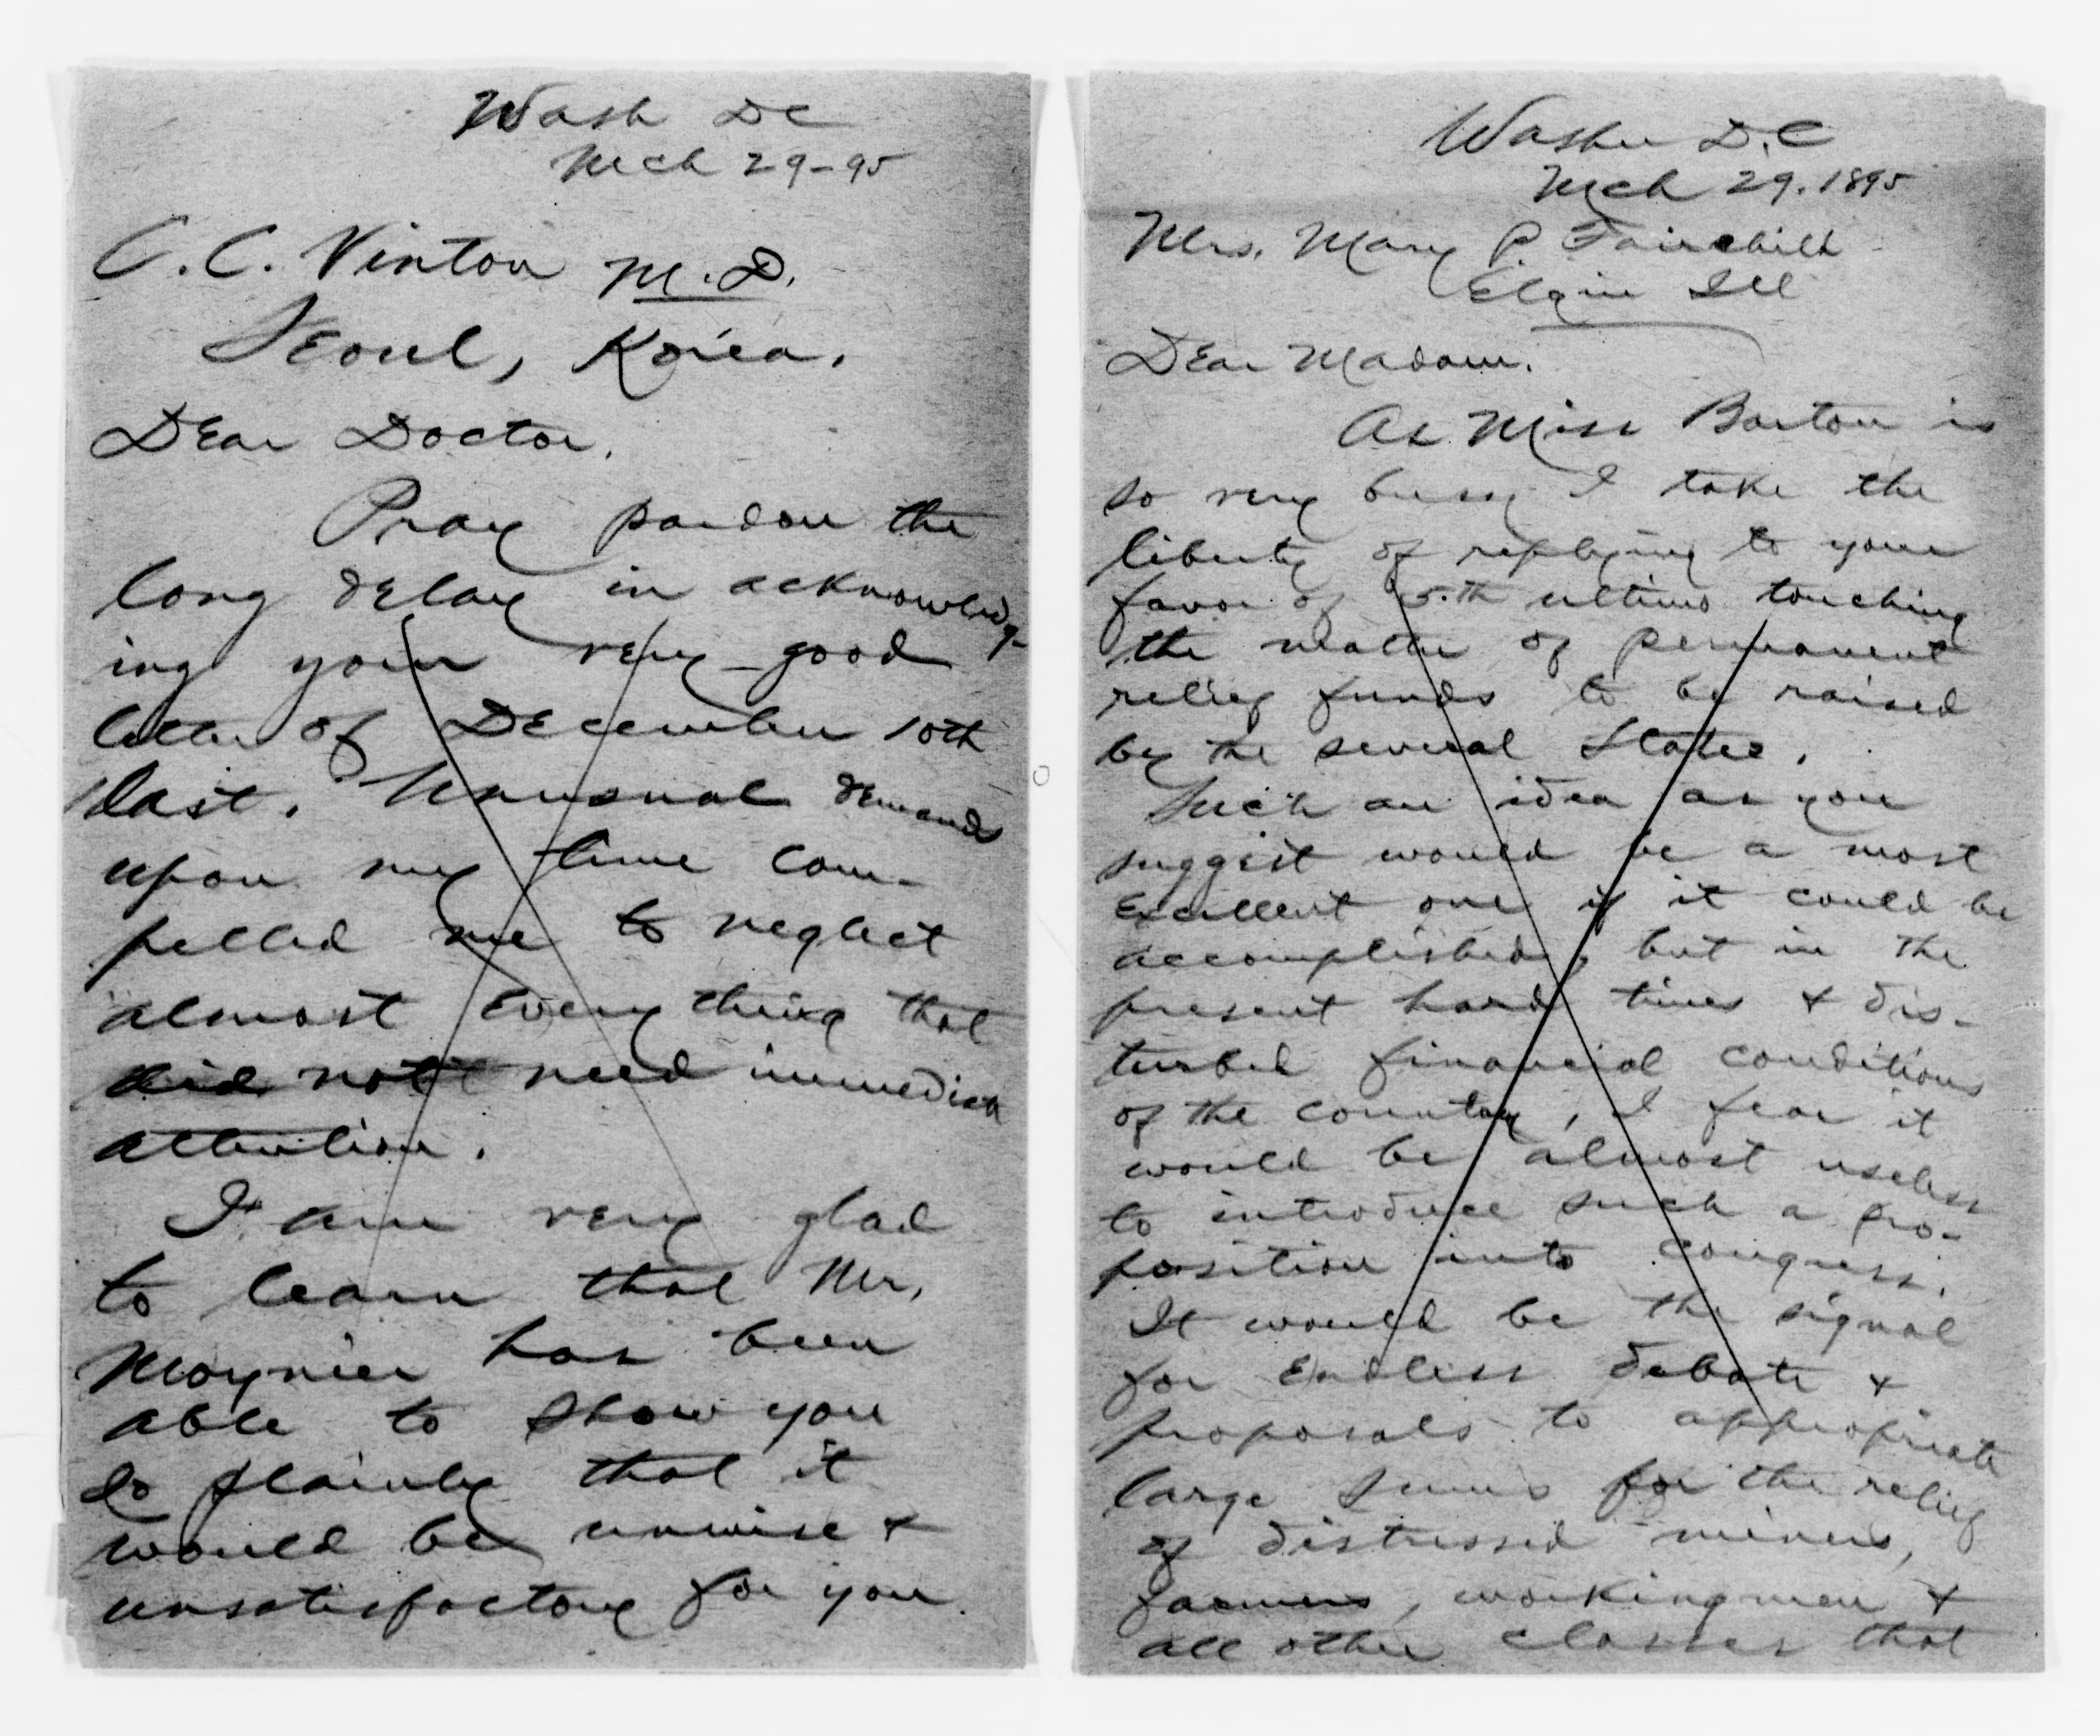 Wash DC
Mch 29-95
C. C. Vinton M.D.
Seoul, Korea.
Dear Doctor.
Pray pardon the
long delay in acknowledg-
ing your very good
letter of December 10th
last. Unusual demands
upon my time com-
pelled me to neglect
almost every thing that
did not need immediate
attention.
I am very glad
to learn that Mr.
Moynier has been
able to show you
so plainly that it
would be unwise &
unsatisfactory for you
Washn D.C
Mch 29. 1895
Mrs. Mary P. Fairchild
Elgin Ill
Dear Madam.
As Miss Barton is
so very busy I take the
liberty of replying to your
favor of 5th ultimo touching
the matter of permanent
relief funds to be raised
by the several States.
Such an idea as you
suggest would be a most
excellent one if it could be
accomplished, but in the
present hard times & dis-
turbed financial conditions
of the country, I fear it
would be almost useless
to introduce such a pro-
position into congress.
It would be the signal
for endless debate &
proposals to appropriate
large sums for the relief
of distressed miners,
farmers, workingmen &
all other classes that